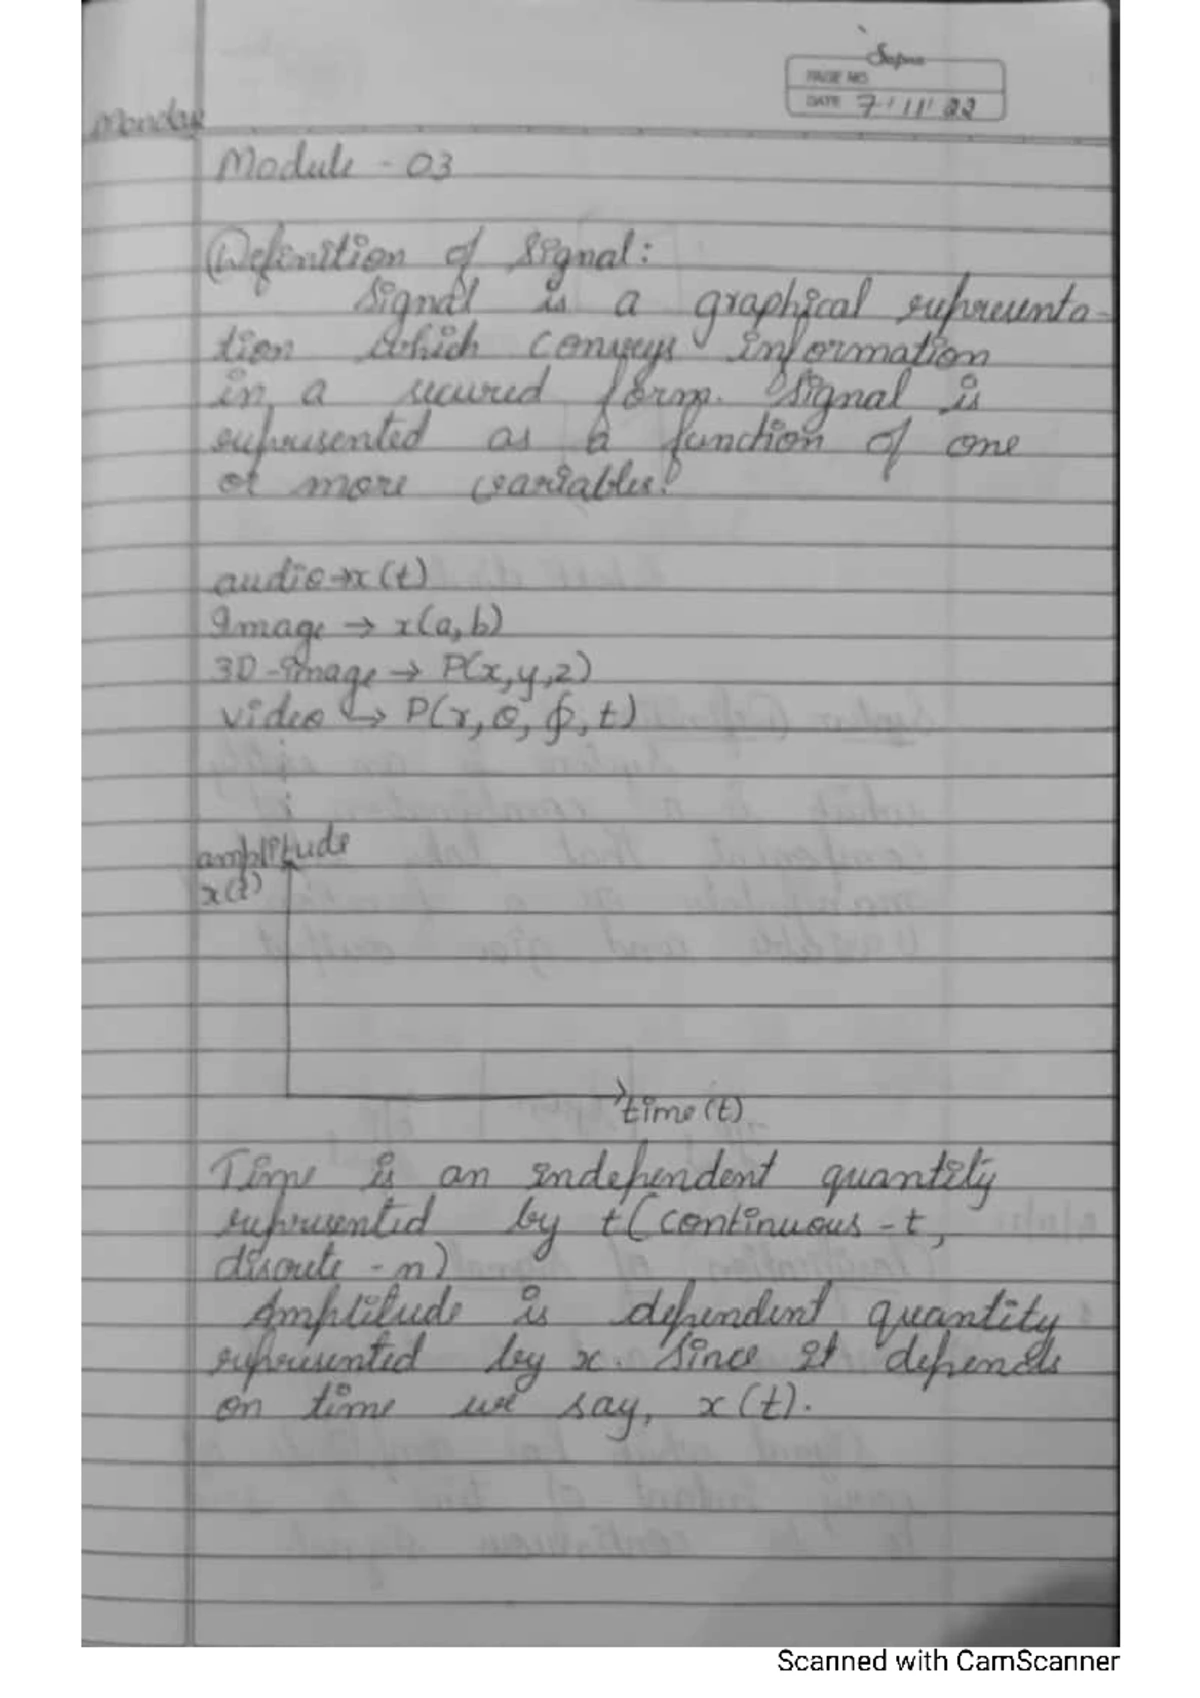 Sapna
PAGE NO.
DATE 7/11/22
Monday
Module - 03
Definition of Signal:
Signal is a graphical representa-
tion which conveys information
in a secured form. Signal is
represented as a function of one
or more variables.
audio → x(t)
Image → x(a,b)
3D-image → P(x,y,z)
video → P(r, θ, ϕ, t)
amplitude
x(t)
time (t)
Time is an independent quantity
represented by t (continuous - t,
discrete - n)
Amplitude is dependent quantity
represented by x. Since it depends
on time we say, x(t).
Scanned with CamScanner